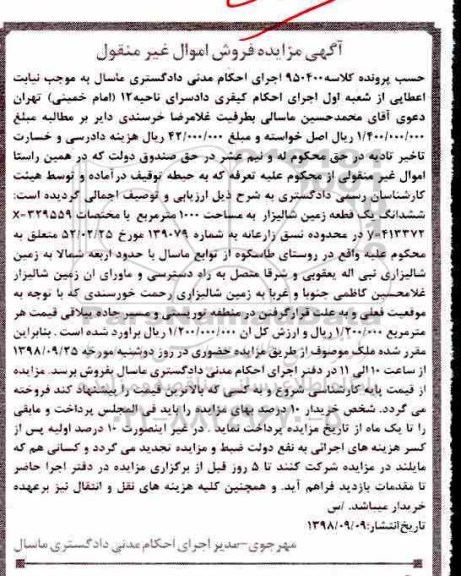 آگهی مزایده فروش اموال غیر منقول
حسب پرونده کلاسه ۹۵۰۴۰۰ اجرای احکام مدنی دادگستری ماسال به موجب نیابت
اعطایی از شعبه اول اجرای احکام کیفری دادسرای ناحیه ۱۲ (امام خمینی) تهران
دعوی آقای محمدحسین ماسالی بطرفیت غلامرضا خرسندی دایر بر مطالبه مبلغ
۱/۴۰۰/۰۰۰/۰۰۰ ریال اصل خواسته و مبلغ ۴۲/۰۰۰/۰۰۰ ریال هزینه دادرسی و خسارت
تاخیر تادیه در حق محکوم له و نیم عشر در حق صندوق دولت که در همین راستا
اموال غیر منقولی از محکوم علیه تعرفه که به حیطه توقیف درآماده و توسط هیئت
کارشناسان رسمی دادگستری به شرح ذیل ارزیابی و توصیف اجمالی گردیده است:
ششدانگ یک قطعه زمین شالیزار به مساحت ۱۰۰۰ مترمربع با مختصات x-۳۲۹۵۵۹
y-۴۱۳۳۷۲ در محدوده نسق زارعانه به شماره ۱۳۹۰۷۹ مورخ ۵۲/۰۲/۲۵ متعلق به
محکوم علیه واقع در روستای طاسکوه از توابع ماسال با حدود اربعه شمالا به زمین
شالیزاری نبی اله یعقوبی و شرقا متصل به راه دسترسی و ماورای ان زمین شالیزار
غلامحسین کاظمی جنوبا و غربا به زمین شالیزاری رحمت خورسندی که با توجه به
موقعیت فعلی و به علت قرارگرفتن در منطقه توریستی و مسیر جاده ییلاقی قیمت هر
مترمربع ۱/۲۰۰/۰۰۰ ریال و ارزش کل ان ۱/۲۰۰/۰۰۰/۰۰۰ ریال براورد شده است . بنابراین
مقرر شده ملک موصوف از طریق مزایده حضوری در روز دوشنبه مورخه ۱۳۹۸/۰۹/۲۵
از ساعت ۱۰ الی ۱۱ در دفتر اجرای احکام مدنی دادگستری ماسال بفروش برسد. مزایده
از قیمت پایه کارشناسی شروع و به کسی که بالاترین قیمت را پیشنهاد کند فروخته
می گردد. شخص خریدار ۱۰ درصد بهای مزایده را باید فی المجلس پرداخت و مابقی
را تا یک ماه از تاریخ مزایده پرداخت نماید . در غیر اینصورت ۱۰ درصد اولیه پس از
کسر هزینه های اجرائی به نفع دولت ضبط و مزایده تجدید می گردد و کسانی هم که
مایلند در مزایده شرکت کنند تا ۵ روز قبل از برگزاری مزایده در دفتر اجرا حاضر
تا مقدمات بازدید فراهم آید. و همچنین کلیه هزینه های نقل و انتقال نیز برعهده
خریدار میباشد. /س
تاریخ انتشار: ۱۳۹۸/۰۹/۰۹
مهرجوی-مدیر اجرای احکام مدنی دادگستری ماسال